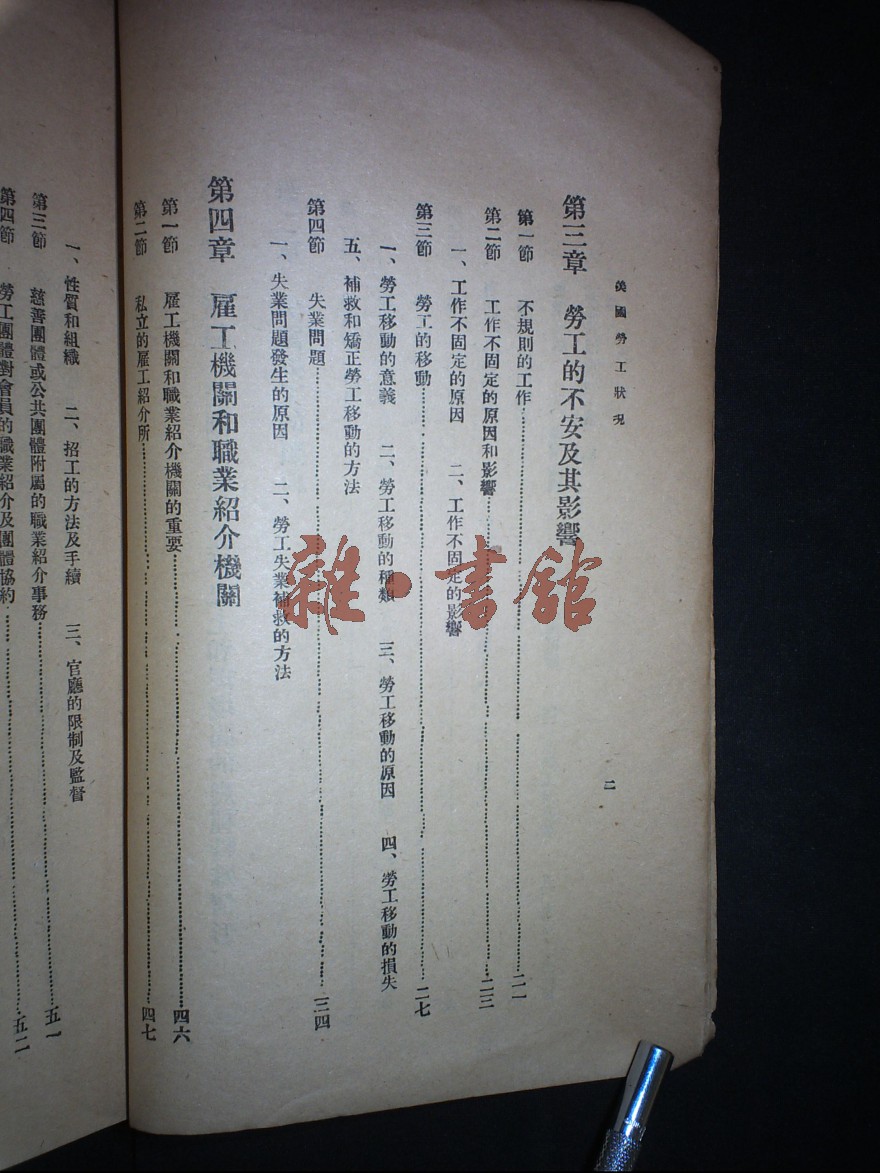 美國勞工狀況
二
第三章 勞工的不安及其影響
第一節 不規則的工作……二一
第二節 工作不固定的原因和影響……二三
一、工作不固定的原因 二、工作不固定的影響
第三節 勞工的移動……二七
一、勞工移動的意義 二、勞工移動的種類 三、勞工移動的原因 四、勞工移動的損失
五、補救和矯正勞工移動的方法
第四節 失業問題……三四
一、失業問題發生的原因 二、勞工失業補救的方法
第四章 雇工機關和職業紹介機關
第一節 雇工機關和職業紹介機關的重要……四六
第二節 私立的雇工紹介所……四七
一、性質和組織 二、招工的方法及手續 三、官廳的限制及監督
第三節 慈善團體或公共團體附屬的職業紹介事務……五一
第四節 勞工團體對會員的職業紹介及團體協約……五二
雜·書館